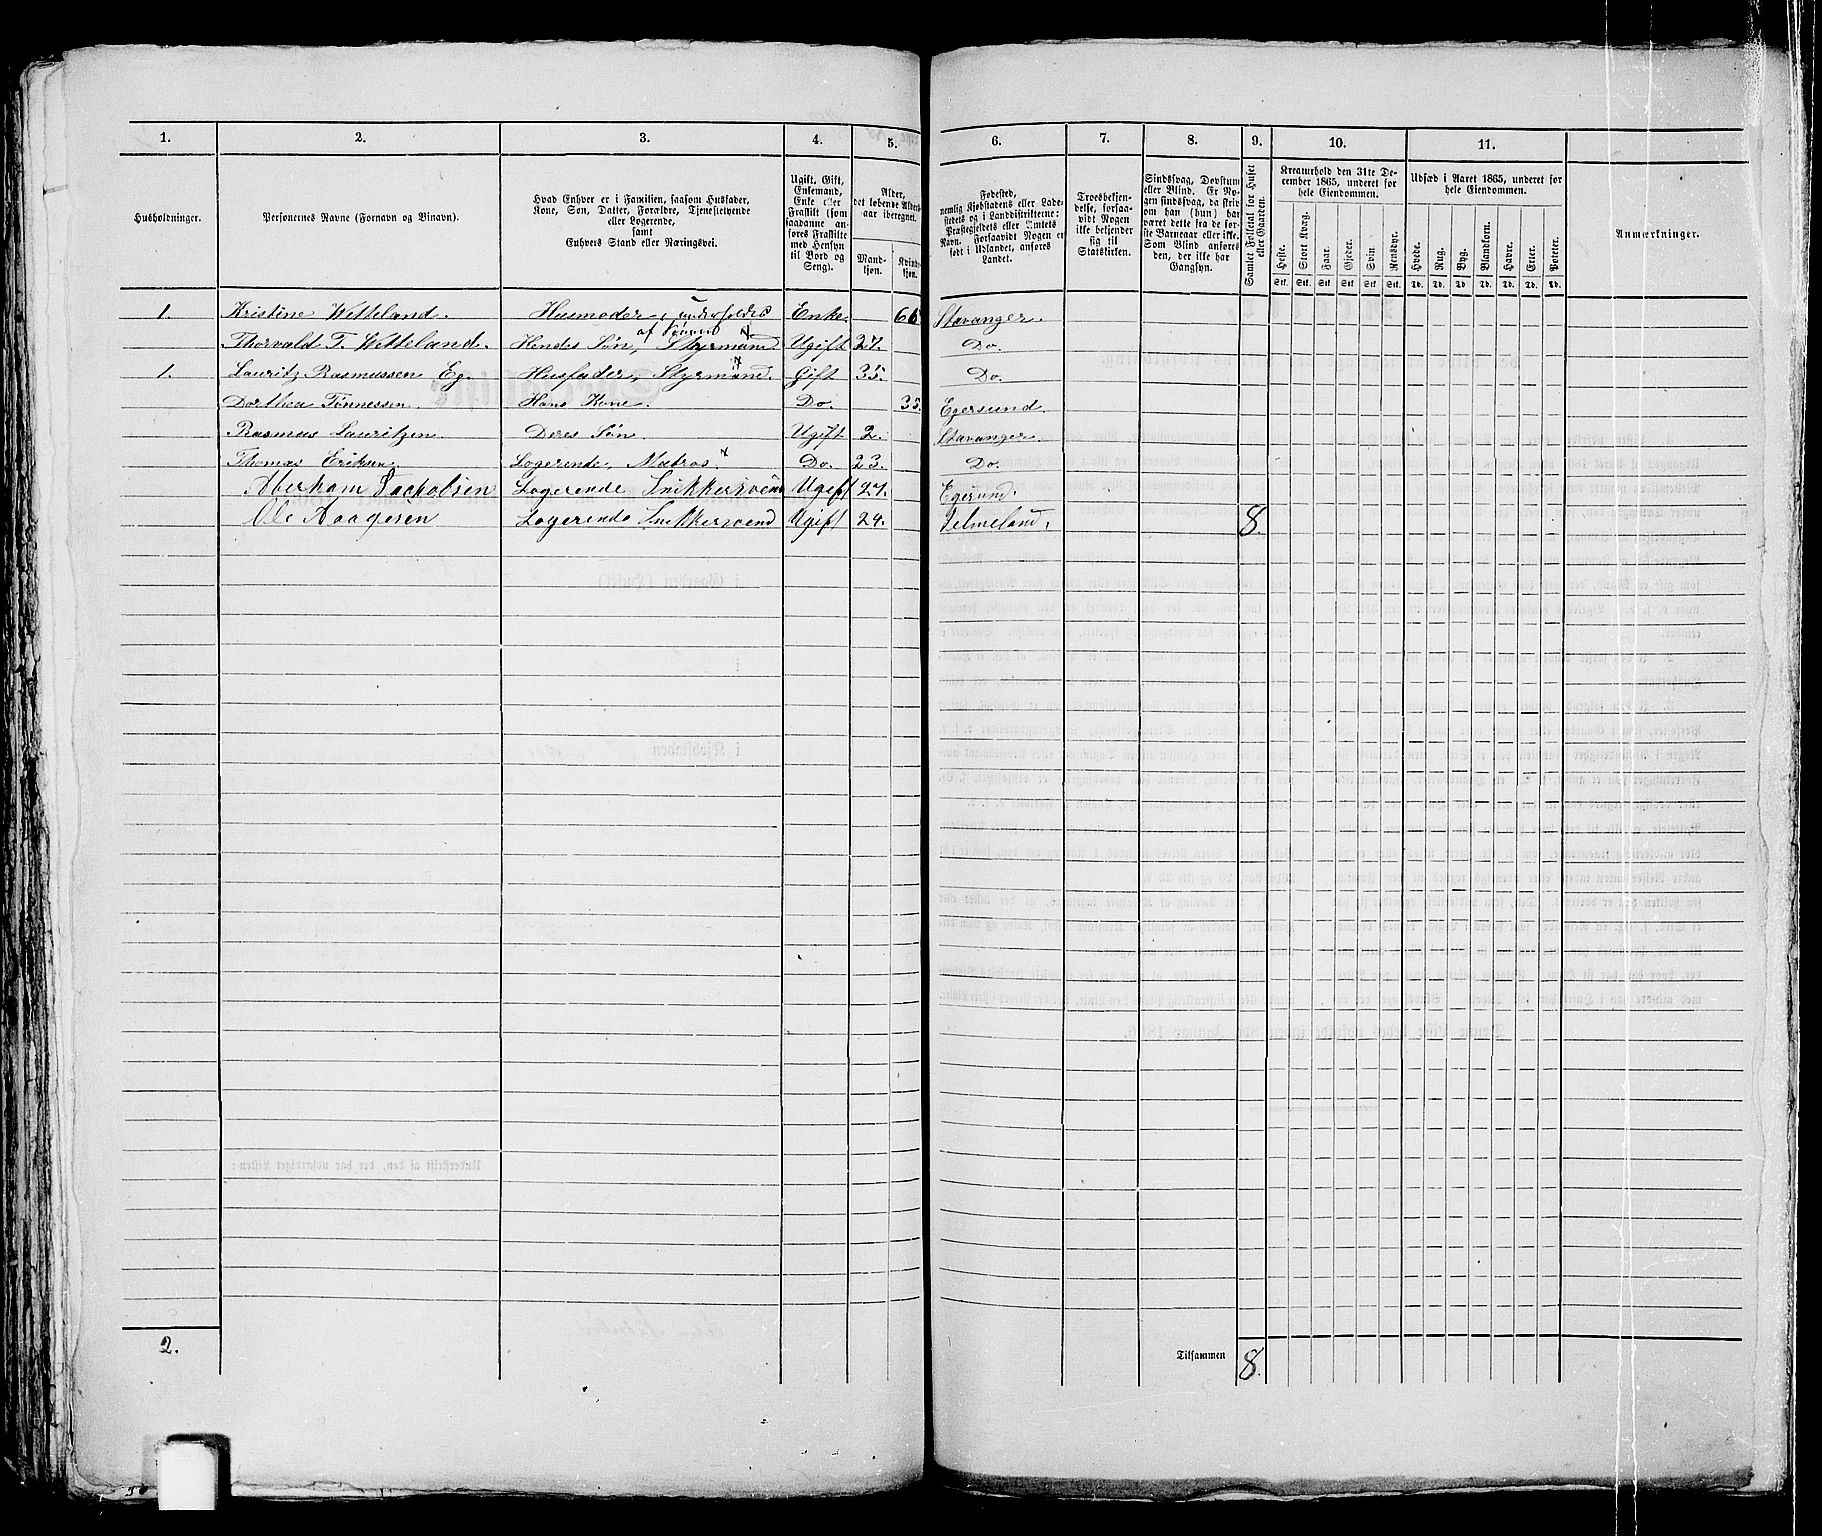 1. 2. 3. 4. 5. 6. 7. 8. 9. 10. 11.
Husholdninger.
Personernes Navne (Fornavn og Binavn).
Hvad Enhver er i Familien, saasom Husfader,
Kone, Søn, Datter, Forældre, Tjenestetyende
eller Logerende,
samt
Enhvers Stand eller Næringsvei.
Ugift, Gift,
Enkemand,
Enke eller
Fraskilt (som
saadanne an-
føres Fraskilte
med Hensyn
til Bord og
Seng).
Alder,
det løbende Alders-
aar iberegnet.
Mand-
kjøn.
Kvind-
kjøn.
Fødested,
nemlig Kjøbstadens eller Lade-
stedets og i Landdistrikterne:
Præstegjeldets eller Amtets
Navn. Forsaavidt Nogen er
født i Udlandet, anføres
Landet.
Troesbekjen-
delse, forsaa-
vidt Nogen
ikke bekjender
sig til
Statskirken.
Sindssvag, Døvstum
eller Blind. Er No-
gen sindssvag, da skriv
om han (hun) har
været dette fra de før-
ste Barneaar eller ikke.
Som Blind anføres
den, der ikke har
Gangsyn.
Samlet Folketal for Huset
eller Gaarden.
Kreaturhold den 31te De-
cember 1865, underet for
hele Eiendommen.
Heste. Stort Kvæg. Faar. Gjeder. Svin. Rensdyr.
Stk. Stk. Stk. Stk. Stk. Stk.
Udsæd i Aaret 1865, underet for
hele Eiendommen.
Hvede. Rug. Byg. Blandkorn. Havre. Erter. Poteter.
Td. Td. Td. Td. Td. Td. Td.
Anmærkninger.
1. Kristine Wetteland. Husmoder, underholdes Enke. 66 Stavanger.
af Sønnen
Thorvald T. Wetteland. Hendes Søn, Styrmand Ugift 27. Do.
1. Lauritz Rasmussen Eg. Husfader, Styrmand. Gift 35. Do.
Dorthea Tønnessen. Hans Kone. Do. 35. Egersund.
Rasmus Lauritzen Deres Søn Ugift 2. Stavanger.
Thomas Eriksen Logerende, Matros. Do. 23. Do.
Aberham Jachobsen Logerende Snikkersvend Ugift 27. Egersund.
Ole Aagesen Logerende Snikkersvend Ugift 24. Jelmeland. 8.
2.
Tilsammen 8.